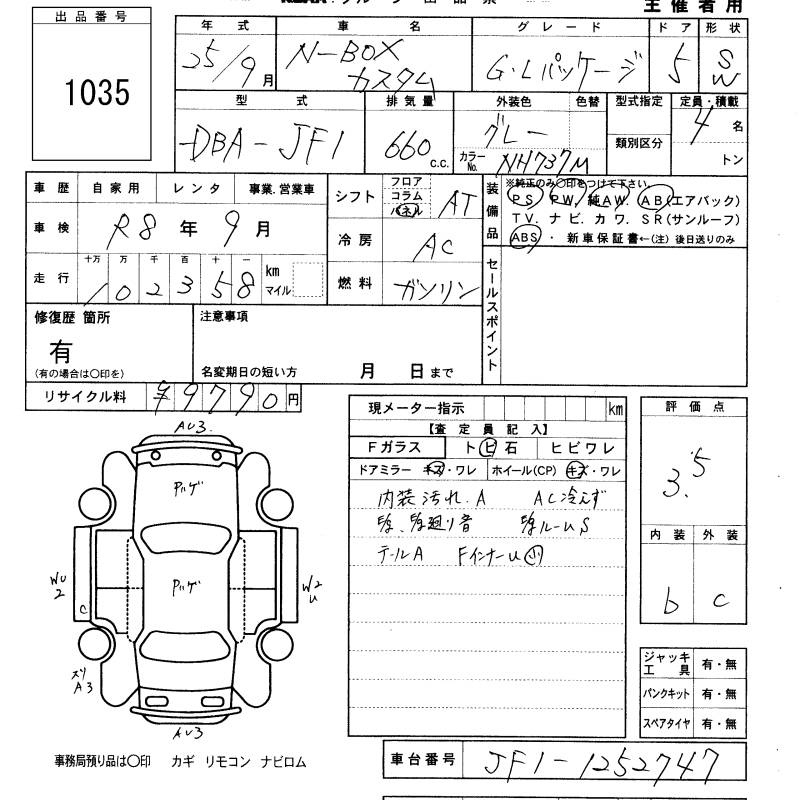 主催者用
出品番号
1035
年式 車名 グレード ドア 形状
25/9月 N-BOX カスタム G・Lパッケージ 5 SW
型式 排気量 外装色 色替 型式指定 定員・積載
DBA-JF1 660 c.c. グレー カラーNo. NH737M 類別区分 4名 トン
車歴 自家用 レンタ 事業.営業車
シフト フロア コラム パネル AT
装備品 ※純正のみ〇印をつけて下さい。
PS PW. 純AW. AB(エアバック)
TV. ナビ. カワ. SR(サンルーフ)
ABS ・ 新車保証書←(注) 後日送りのみ
車検 R8年 9月
冷房 AC
走行 十万 万 千 百 十 一
102358 km マイル
燃料 ガソリン
セールスポイント
修復歴 箇所 注意事項
有
(有の場合は〇印を) 名変期日の短い方 月 日まで
リサイクル料 ¥9790円
現メーター指示 km
【査定員記入】
Fガラス トビ石 ヒビワレ
ドアミラー キズ・ワレ ホイール(CP) キズ・ワレ
内装汚れ.A AC冷えず
廻り音 ルームS
テールA FインナーU 小
評価点
3.5
内装 外装
b c
AU3.
Pハゲ
Pハゲ
WU2
C
W2U
ズリ
A3
AU3
ジャッキ工具 有・無
パンクキット 有・無
スペアタイヤ 有・無
事務局預り品は〇印 カギ リモコン ナビロム
車台番号 JF1-1252747